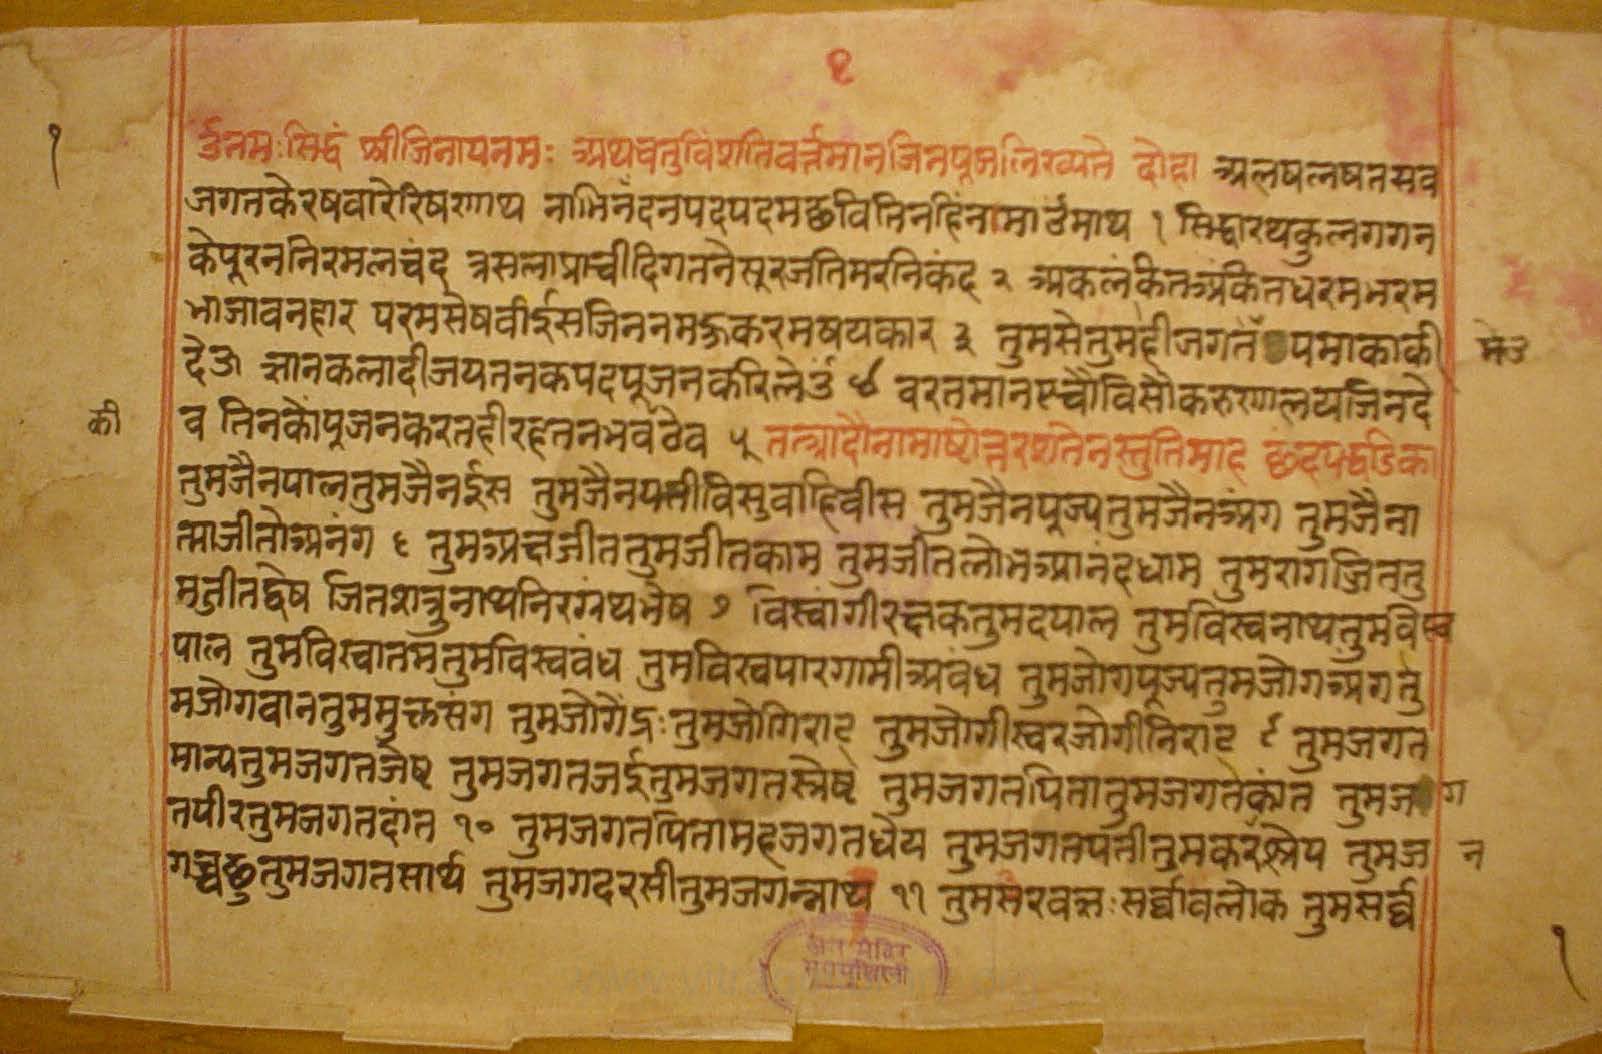 १
१
र्उनमःसिद्धं श्रीजिनायनमः अथचतुर्विंशतिवर्त्तमानजिनपूजालिख्यते दोहा अलषलषतसव
जगतकेरषवारेरिषरणाथ नाभिनंदनपदपदमछवितिनहिंनामार्उमाथ १ सिद्धारथकुलगगन
केपूरननिरमलचंद त्रसलाप्राचीदिगतनैसूरजतिमरनिकंद २ अकलंकितअंकितधरमभरम
भाजावनहार परमसेषवीरईसजिननमऊकरमषयकार ३ तुमसेतुमहीजगत पमाकाकी मेउ
देऊ ज्ञानकलादीजयतनकपदपूजनकरिलेर्उ ४ वरतमानचौविसौकरुणालयजिनदे
की
व तिनकौपूजनकरतहीरहतनभवठेव ५ तत्रादौनामाष्टोत्तरशतेनस्तुतिमाह छंदपद्धडिका
तुमजैनपालतुमजैनईस तुमजैनयतीविसुवाहिवीस तुमजैनपूज्यतुमजैनअंग तुमजैना
त्माजीतोअनंग ६ तुमअक्षजीततुमजीतकाम तुमजीतलोभआनंदधाम तुमरागजिततु
मजीतद्वेष जितशत्रुनाथनिरग्रंथभेष ७ विस्वांगीरक्षकतुमदयाल तुमविस्वनाथतुमविस्व
पाल तुमविस्वातमतुमविस्ववंध तुमविस्वपारगामीअवंध तुमजोगपूज्यतुमजोगअगतु
मजोगवानतुममुक्तसंग तुमजोगैंद्रःतुमजोगिराट् तुमजोगीस्वरजोगीनिराट् ९ तुमजगत
मान्यतुमजगतजेष्ट तुमजगतजईतुमजगतस्त्रेष्ट तुमजगतपितातुमजगतकांत तुमज ग
तपीरतुमजगतदांत १० तुमजगतपितामहजगतधेय तुमजगतपतीतुमकरंश्रेय तुमज न
गच्चछुतुमजगतसार्थ तुमजगदरसीतुमजगन्नाथ ११ तुमसरवज्ञःसर्व्वावलोक तुमसर्व्व
१